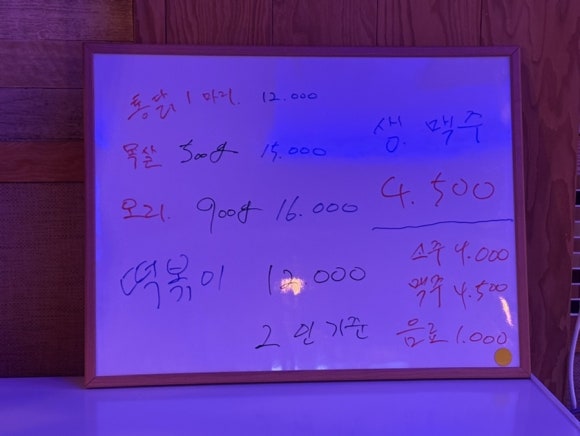 통닭 1마리. 12.000
목살 500g 15.000
오리. 900g 16.000
떡볶이 12.000
2인기준
생. 맥주
4.500
소주 4.000
맥주 4.500
음료 1.000